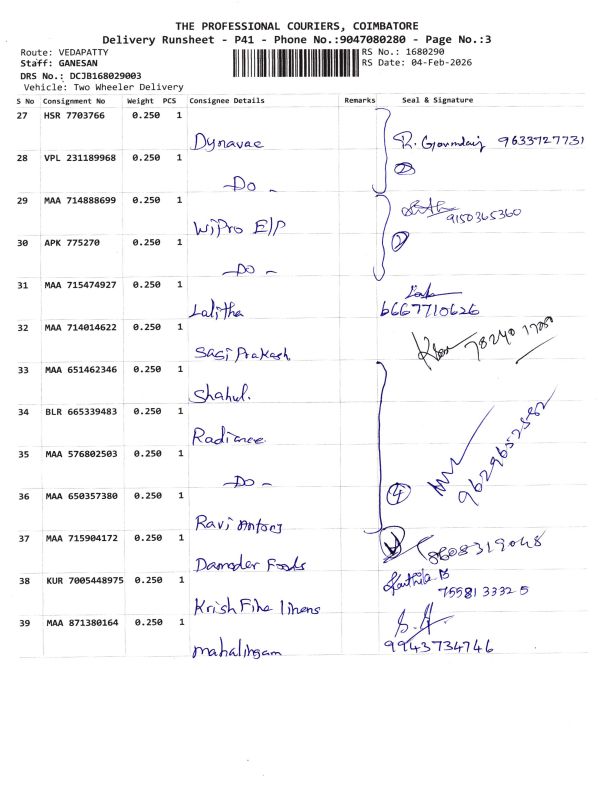 THE PROFESSIONAL COURIERS, COIMBATORE
Delivery Runsheet - P41 - Phone No.:9047080280 - Page No.:3
Route: VEDAPATTY
RS No.: 1680290
Staff: GANESAN
RS Date: 04-Feb-2026
DRS No.: DCJB168029003
Vehicle: Two Wheeler Delivery
S No Consignment No Weight PCS Consignee Details Remarks Seal & Signature
27 HSR 7703766 0.250 1
Dynavac R. Govindaraj 9633727731
28 VPL 231189968 0.250 1
2
-Do-
29 MAA 714888699 0.250 1
9150365360
Wipro E/P
30 APK 775270 0.250 1
2
-Do-
31 MAA 715474927 0.250 1
Lalitha 6667710626
32 MAA 714014622 0.250 1
Sasi Prakash
33 MAA 651462346 0.250 1
Shahul.
34 BLR 665339483 0.250 1
Radiance 9629652582
35 MAA 576802503 0.250 1
-Do-
4
36 MAA 650357380 0.250 1
Ravi Antony
37 MAA 715904172 0.250 1
8608319048
Damoder Foods
38 KUR 7005448975 0.250 1
7558133325
Krish Fine linens
39 MAA 871380164 0.250 1
mahalingam 9943734746